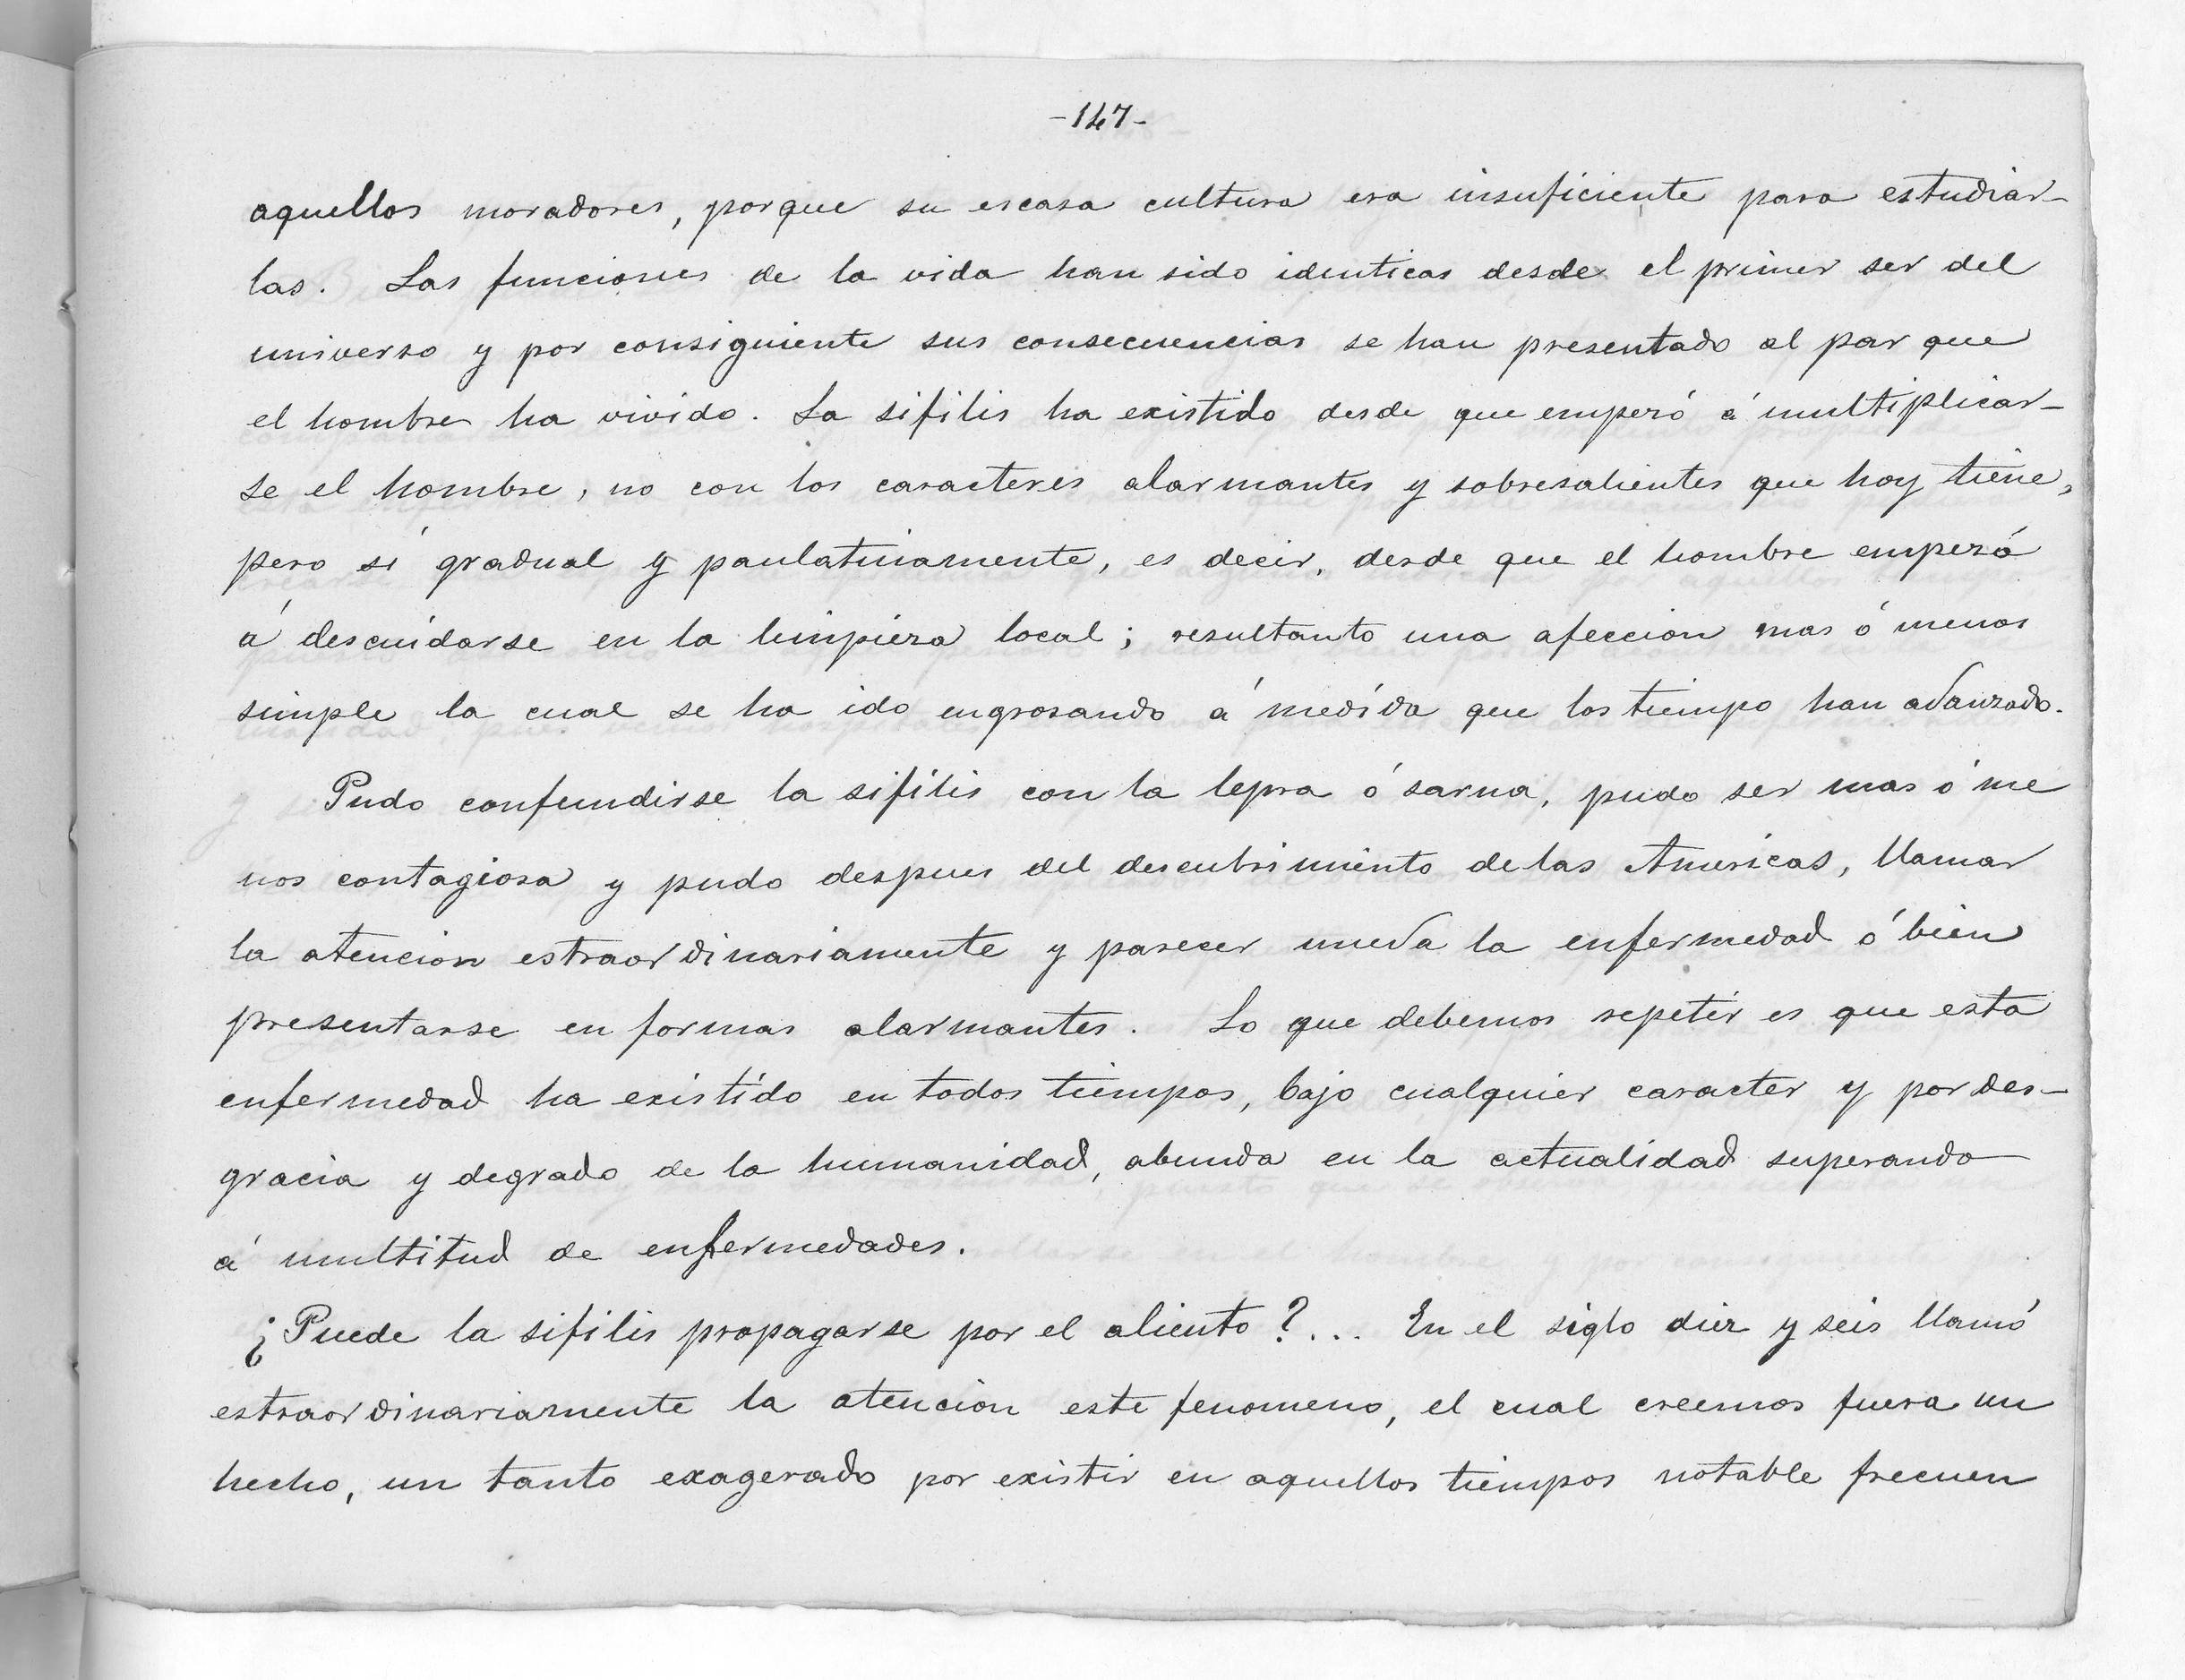 -147-
aquellos moradores, porque su escasa cultura era insuficiente para estudiar-
las. Las funciones de la vida han sido identicas desde el primer ser del
universo y por consiguiente sus consecuencias se han presentado al par que
el hombre ha vivido. La sifilis ha existido desde que empezó á multiplicar-
se el hombre, no con los caracteres alarmantes y sobresalientes que hoy tiene,
pero sí gradual y paulatinamente, es decir, desde que el hombre empezó
á descuidarse en la limpieza local; resultanto una afeccion mas ó menos
simple la cual se ha ido engrosando á medída que los tiempo han avanzado.
Pudo confundirse la sifilis con la lepra ó sarna, pudo ser mas ó me
nos contagiosa y pudo despues del descubrimiento de las Americas, llamar
la atencion estraordinariamente y parecer nueva la enfermedad ó bien
presentarse en formas alarmantes. Lo que debemos repetir es que esta
enfermedad ha existido en todos tiempos, bajo cualquier caracter y por des-
gracia y degrado de la humanidad, abunda en la actualidad superando
á multitud de enfermedades.
¿Puede la sifilis propagarse por el aliento?... En el siglo diez y seis llamó
estraordinariamente la atencion este fenomeno, el cual creemos fuera un
hecho, un tanto exagerado por existir en aquellos tiempos notable frecuen